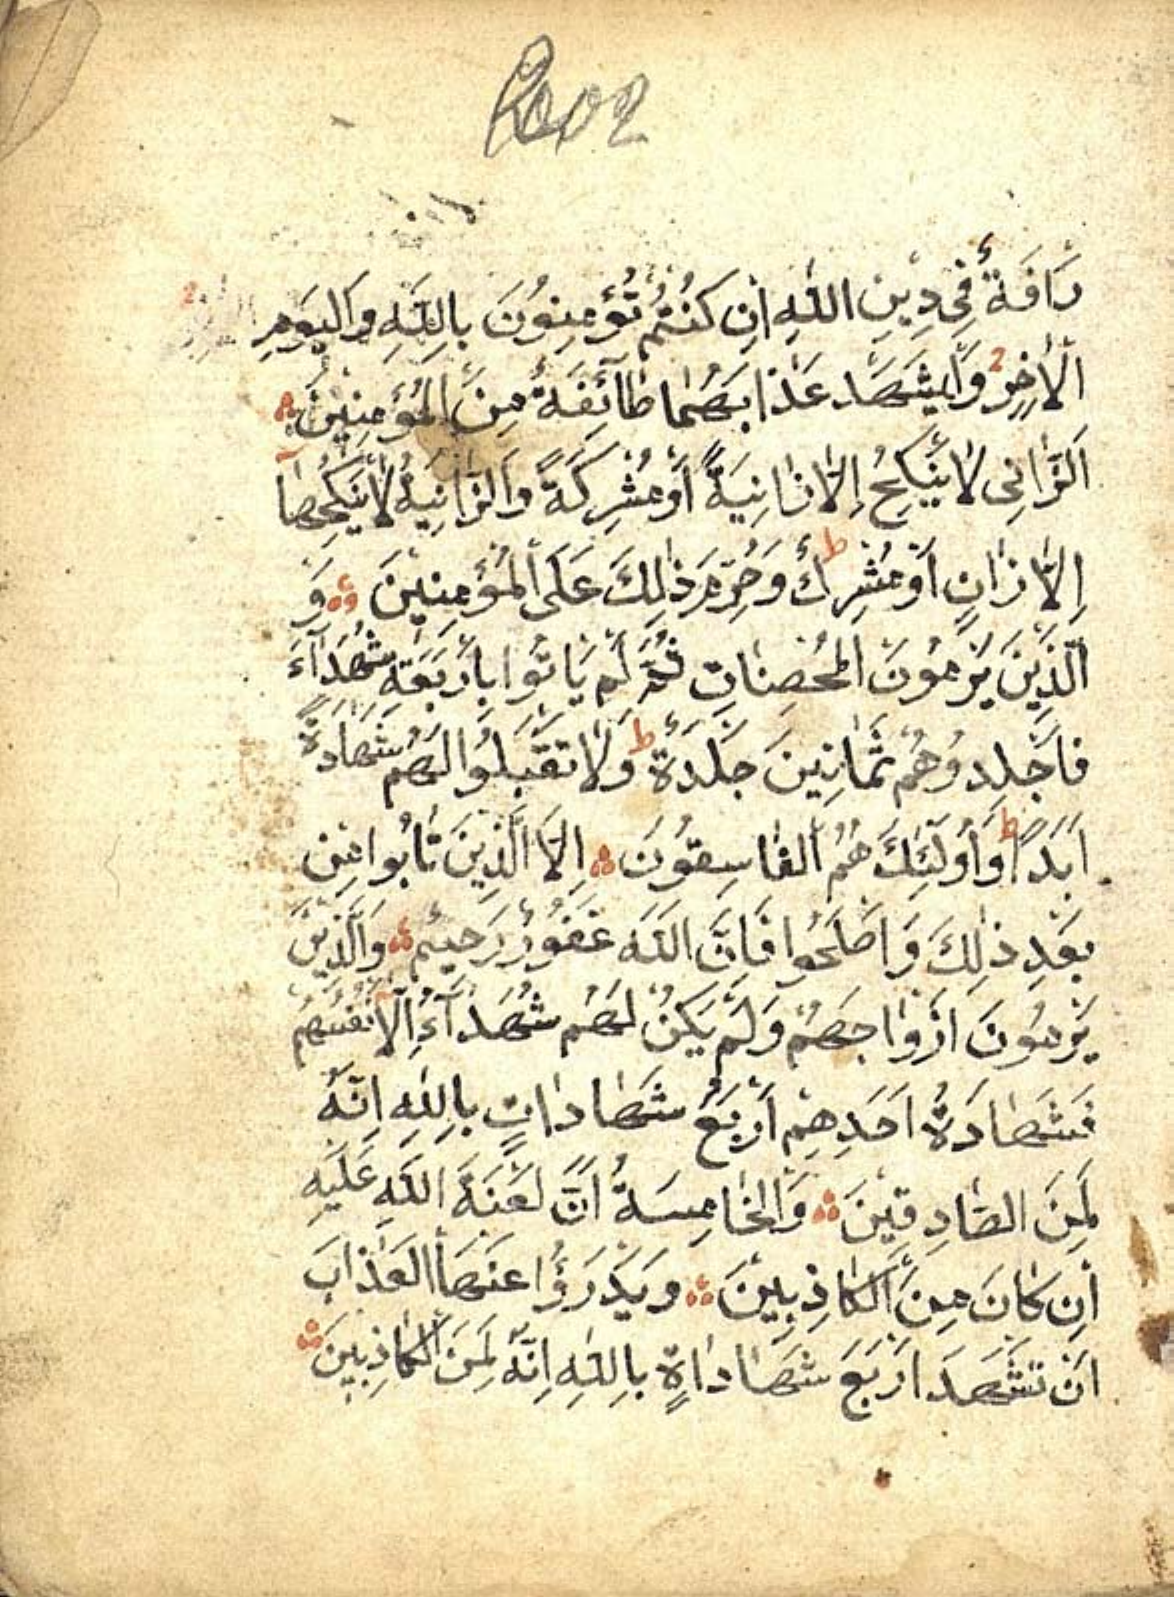 رَافَةٌ فِي دِينِ اللّٰهِ اِنْ كُنْتُمْ تُؤْمِنُونَ بِاللّٰهِ وَالْيَوْمِ
الْاٰخِرِ وَلْيَشْهَدْ عَذَابَهُمَا طَآئِفَةٌ مِنَ الْمُؤْمِنِينَ
اَلزَّانِى لَا يَنْكِحُ اِلَّا زَانِيَةً اَوْ مُشْرِكَةً وَالزَّانِيَةُ لَا يَنْكِحُهَا
اِلَّا زَانٍ اَوْ مُشْرِكٌ ط وَحُرِّمَ ذٰلِكَ عَلَى الْمُؤْمِنِينَ وَ
الَّذِينَ يَرْمُونَ الْمُحْصَنَاتِ ثُمَّ لَمْ يَاْتُوا بِاَرْبَعَةِ شُهَدَآءَ
فَاجْلِدُوهُمْ ثَمَانِينَ جَلْدَةً ط وَلَا تَقْبَلُوا لَهُمْ شَهَادَةً
اَبَدًا ط وَاُولٰئِكَ هُمُ الْفَاسِقُونَ اِلَّا الَّذِينَ تَابُوا مِنْ
بَعْدِ ذٰلِكَ وَاَصْلَحُوا فَاِنَّ اللّٰهَ غَفُورٌ رَحِيمٌ وَالَّذِينَ
يَرْمُونَ اَزْوَاجَهُمْ وَلَمْ يَكُنْ لَهُمْ شُهَدَآءُ اِلَّا اَنْفُسُهُمْ
فَشَهَادَةُ اَحَدِهِمْ اَرْبَعُ شَهَادَاتٍ بِاللّٰهِ اِنَّهُ
لَمِنَ الصَّادِقِينَ وَالْخَامِسَةُ اَنَّ لَعْنَةَ اللّٰهِ عَلَيْهِ
اِنْ كَانَ مِنَ الْكَاذِبِينَ وَيَدْرَؤُا عَنْهَا الْعَذَابَ
اَنْ تَشْهَدَ اَرْبَعَ شَهَادَاةٍ بِاللّٰهِ اِنَّهُ لَمِنَ الْكَاذِبِينَ